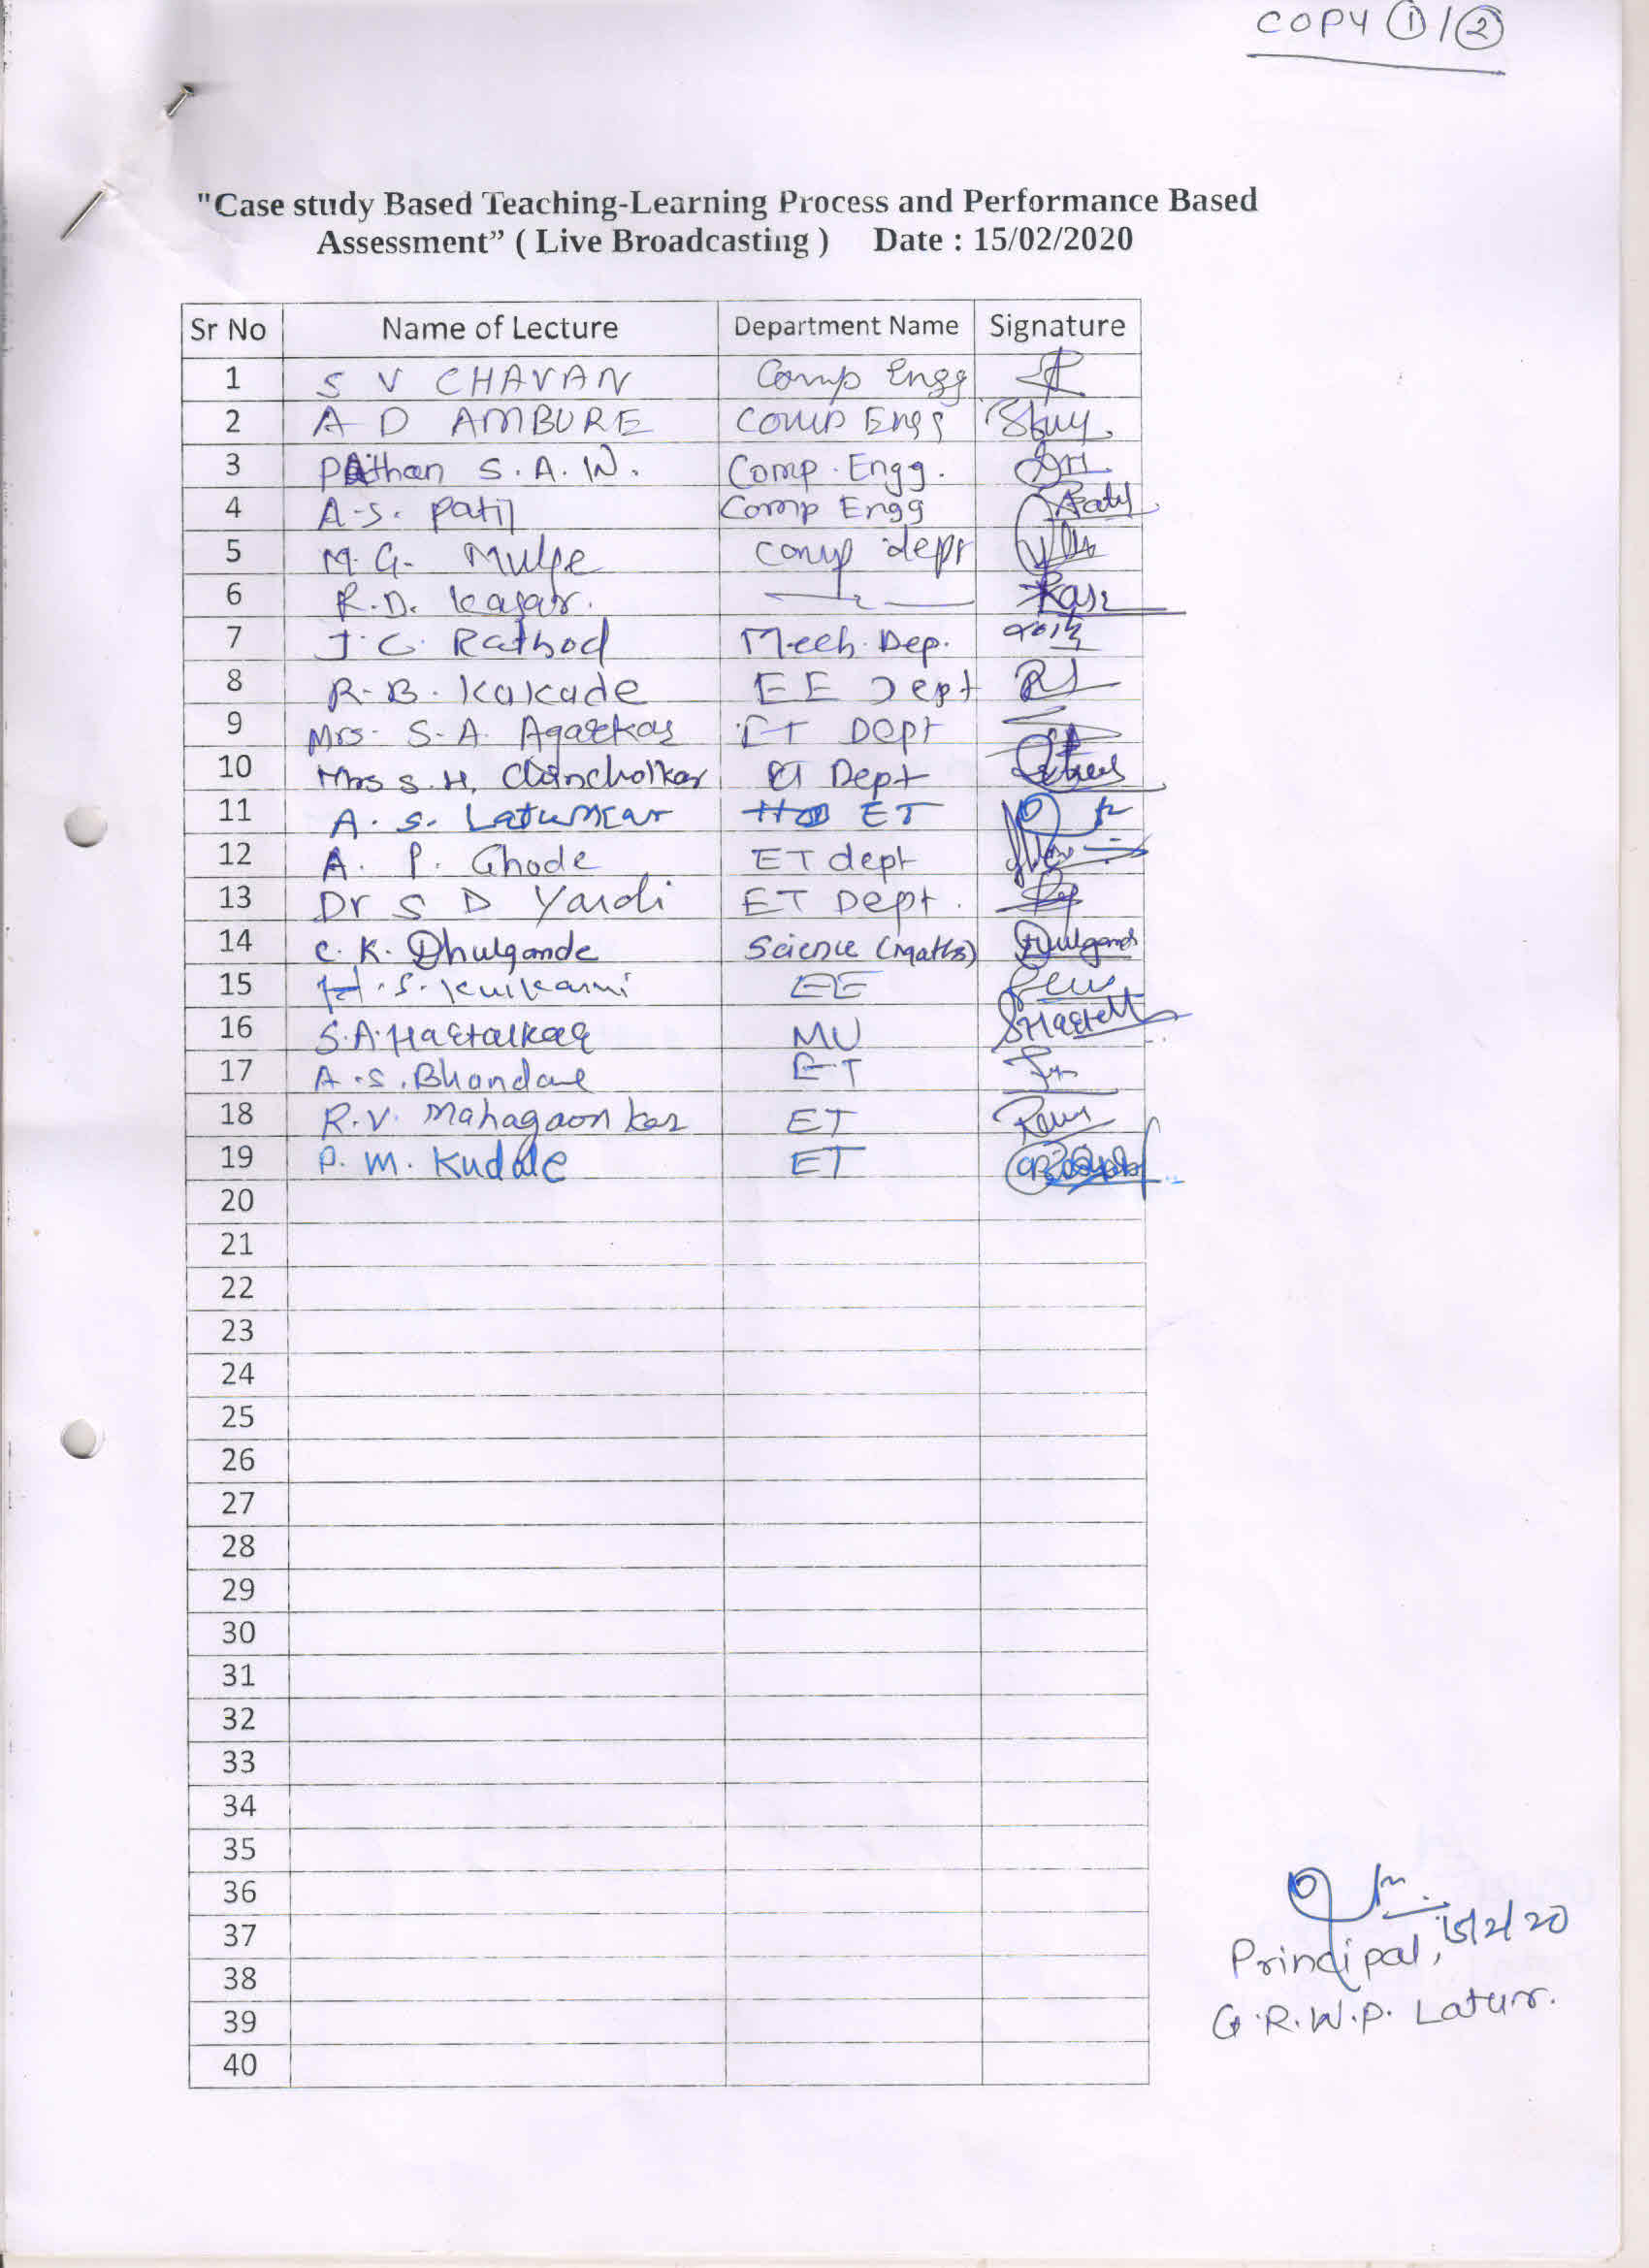 COPY ① / ②
"Case study Based Teaching-Learning Process and Performance Based
Assessment” ( Live Broadcasting ) Date : 15/02/2020
Sr No Name of Lecture Department Name Signature
1 S V CHAVAN Comp Engg
2 A D AMBURE Comp Engg
3 Pathan S.A.W. Comp. Engg.
4 A.S. Patil Comp Engg Patil
5 M.G. Mulge comp dept
6 R.D. Kasar.
7 J.C. Rathod Mech. Dep.
8 R.B. Kakade EE Dept
9 Mrs. S.A. Agarkar ET Dept
10 Mrs S.H. Chincholkar ET Dept
11 A.S. Laturkar ET
12 A. P. Ghode ET dept
13 Dr S D Yardi ET Dept.
14 C.K. Dhulgande Science (Maths) Dhulgande
15 H.S. Kulkarni EE
16 S.A. Hartalkar MU
17 A.S. Bhandare ET
18 R.V. Mahagaonkar ET
19 P. M. Kudale ET
20
21
22
23
24
25
26
27
28
29
30
31
32
33
34
35
36
37
38
39
40
15/2/20
Principal,
G.R.W.P. Latur.